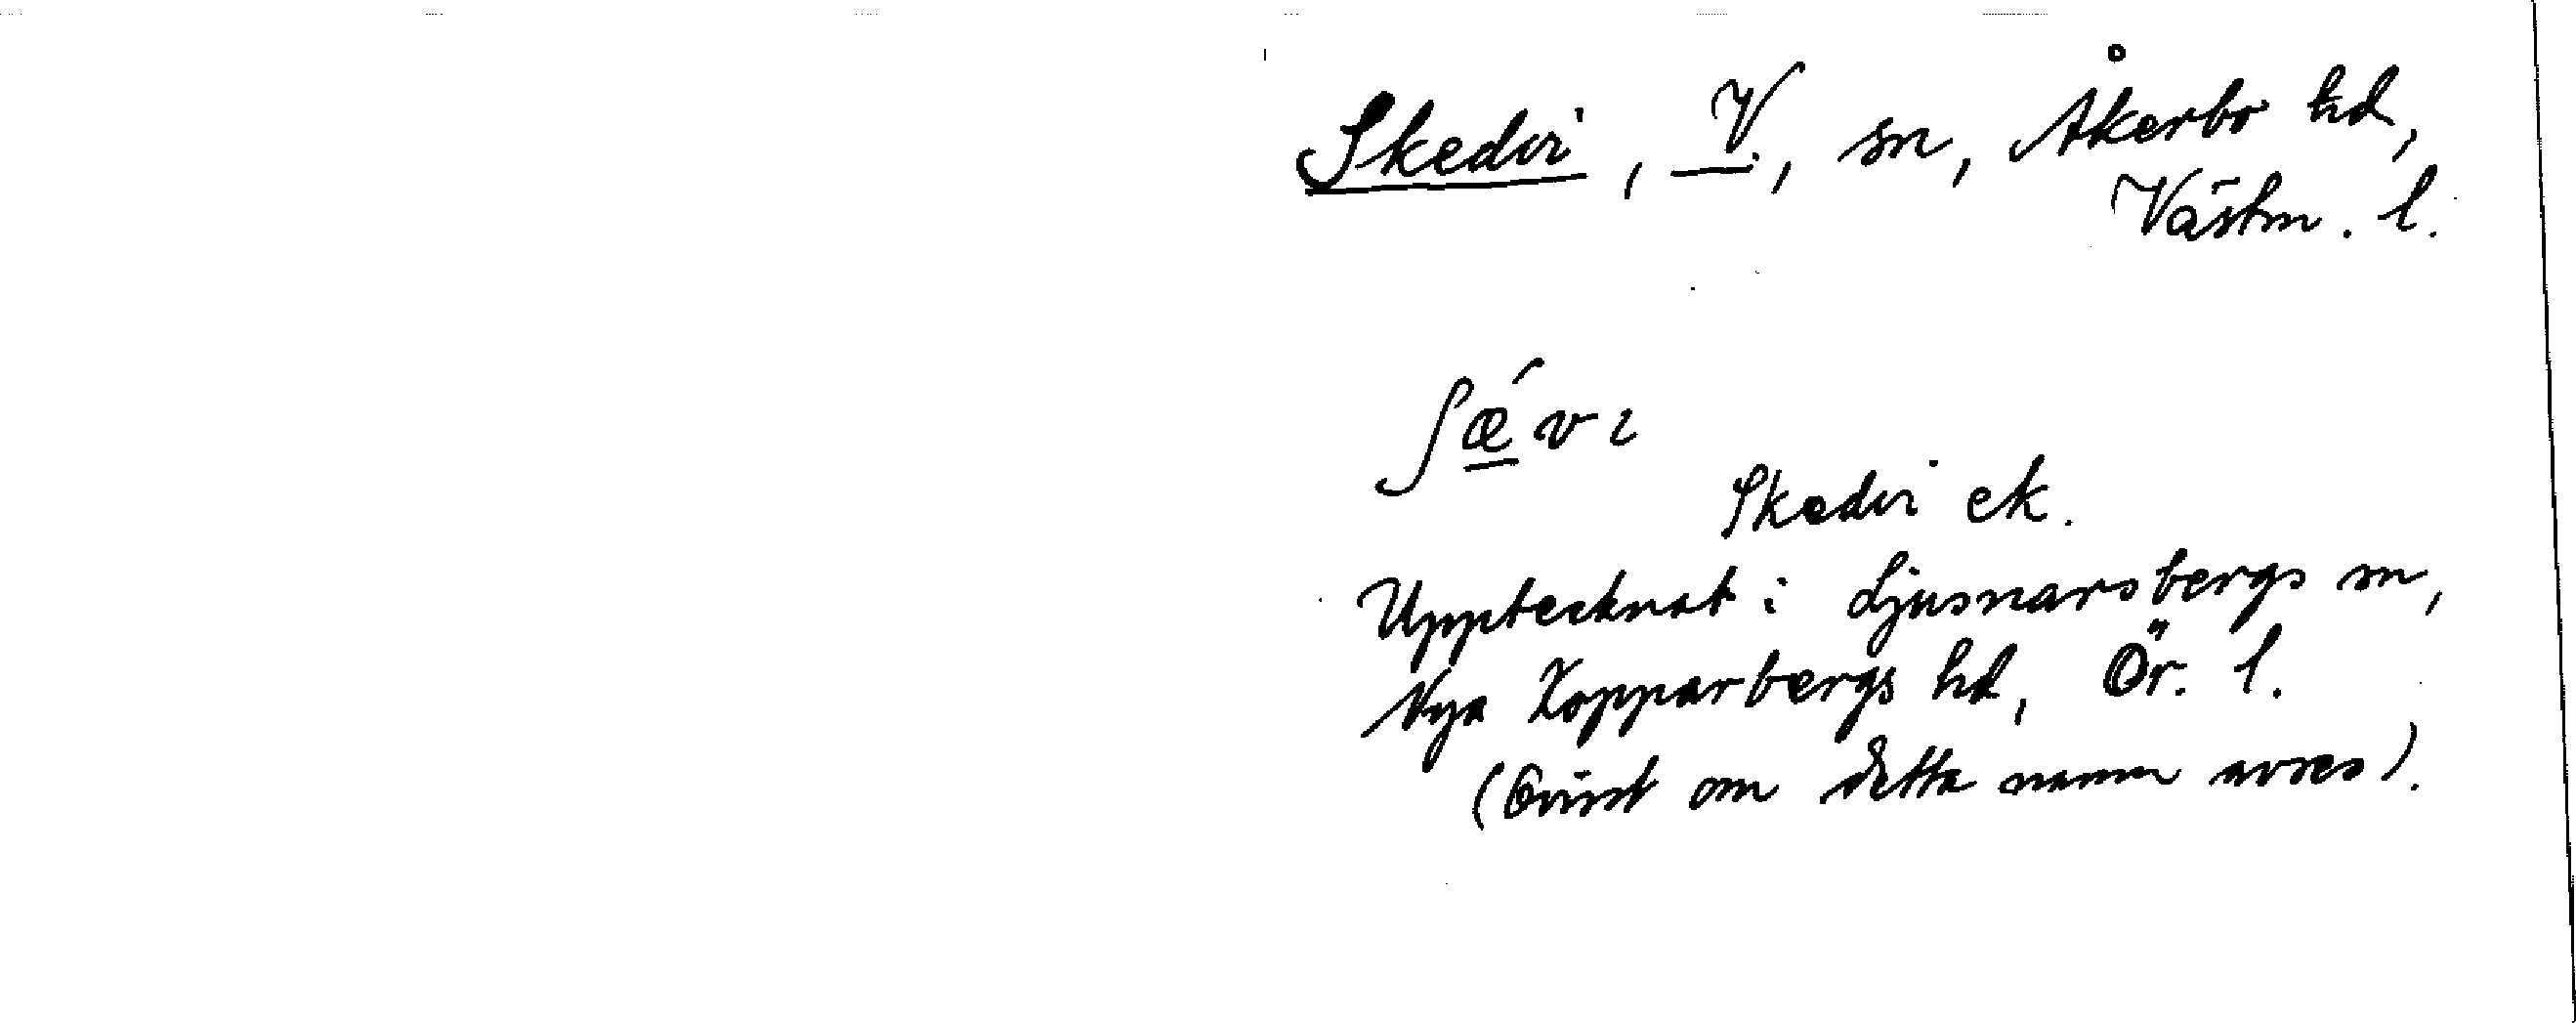 Skedvi, V., sn, Åkerbo hd,
Västm. l.
ʃǽvi
Skedvi ek.
Upptecknat i Ljusnarsbergs sn,
Nya Kopparbergs hd, Ör. l.
(Ovisst om detta namn avses).